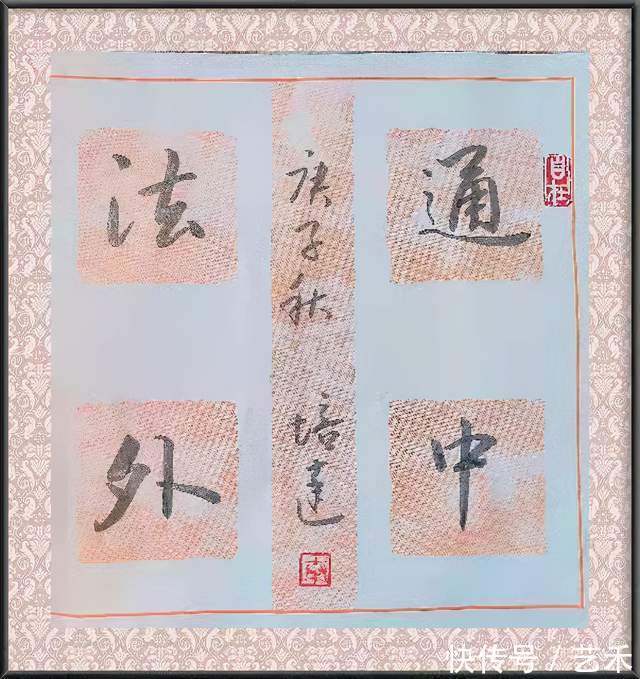 通中
庚子秋 培達
法外
快传号 / 艺禾